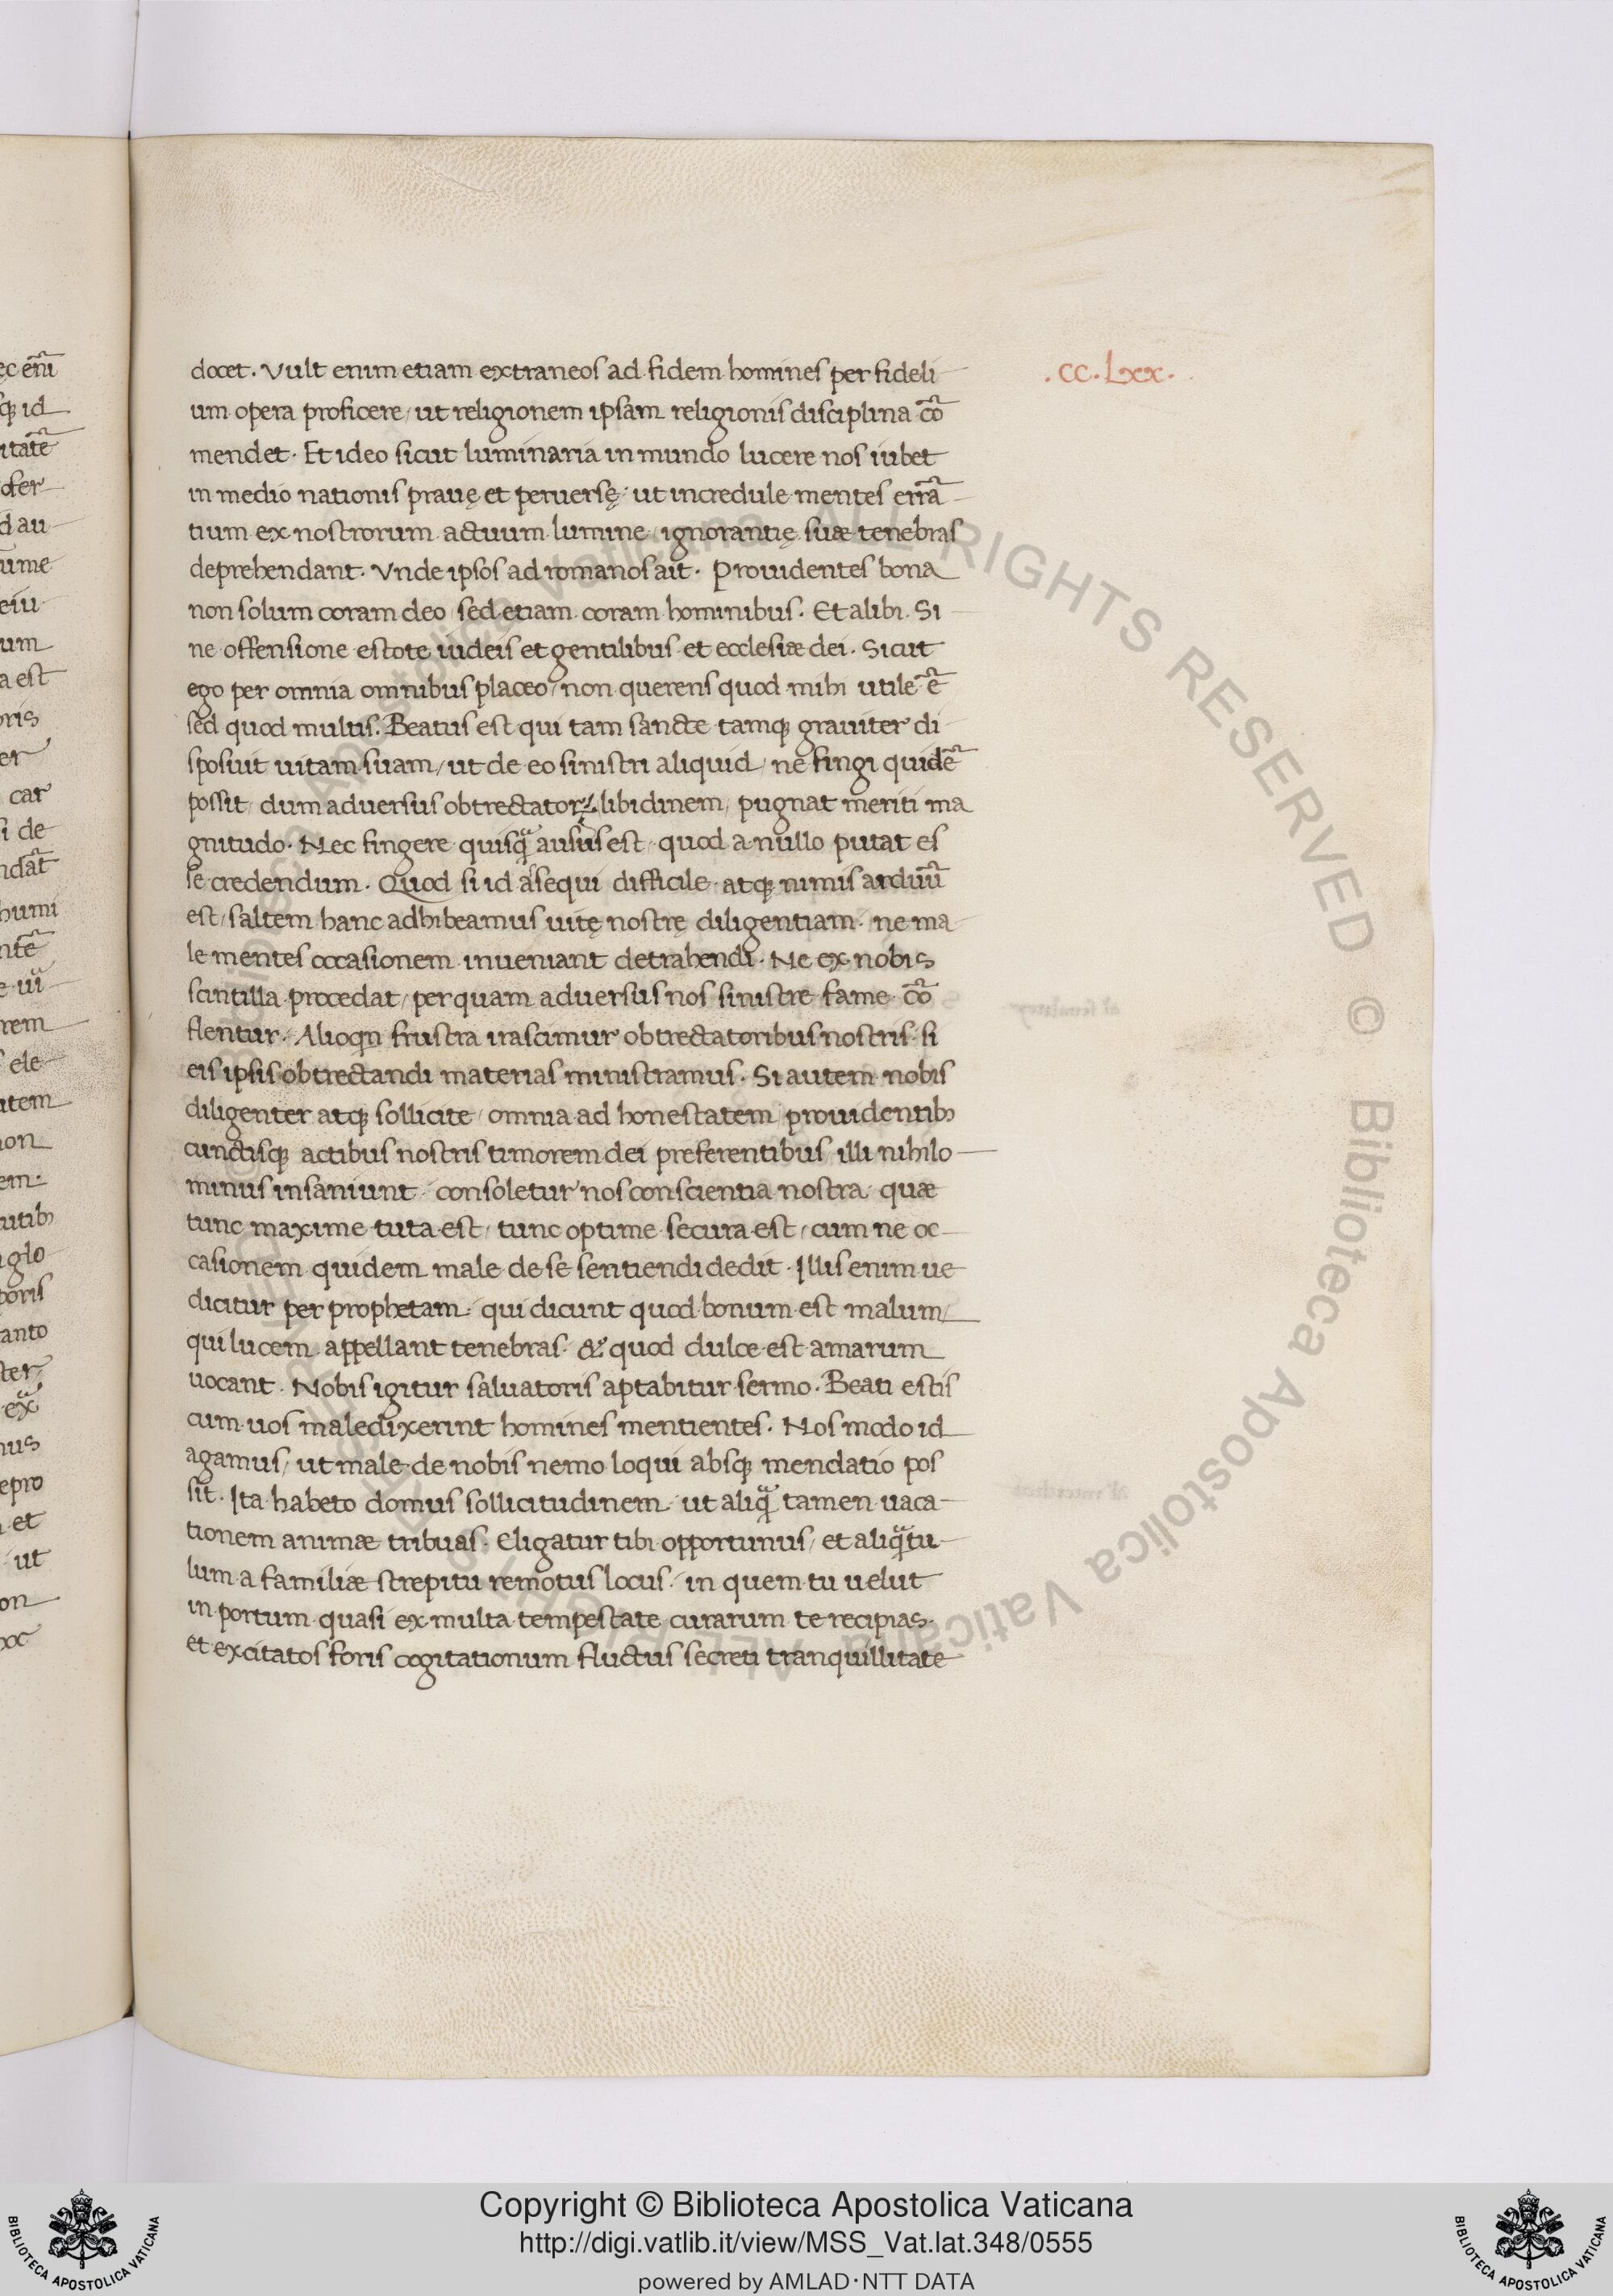 .CC.Lxx.
docet. Vult enim etiam extraneos ad fidem homines per fideli
um opera proficere, ut religionem ipsam religionis disciplina cō
mendet. Et ideo sicut luminaria in mundo lucere nos iubet
in medio nationis prauę et peruersę: ut incredule mentes errā
tium ex nostrorum actuum lumine, ignorantię suæ tenebras
deprehendant. Vnde ipsos ad romanos ait. Prouidentes bona
non solum coram deo, sed etiam coram hominibus. Et alibi. Si
ne offensione estote iudeis et gentilibus et ecclesiæ dei. Sicut
ego per omnia omnibus placeo, non querens quod mihi utile ē
sed quod multis. Beatus est qui tam sancte tamq; grauiter di
sposuit uitam suam, ut de eo sinistri aliquid, ne fingi quidē
possit, dum aduersus obtrectatorꝝ libidinem, pugnat meriti ma
gnitudo. Nec fingere quisq̃ ausus est, quod a nullo putat es
se credendum. Quod si id asequi difficile, atq; nimis arduū
est, saltem hanc adhibeamus uitę nostrę diligentiam, ne ma
le mentes occasionem inueniant detrahendi. Ne ex nobis
scintilla procedat, per quam aduersus nos sinistre fame cō
flentur. Alioqn frustra irascimur obtrectatoribus nostris, si
eis ipsis obtrectandi materias ministramus. Si autem nobis
diligenter atq; sollicite, omnia ad honestatem prouidentib;
cunctisq; actibus nostris timorem dei preferentibus, illi nihilo
minus insaniunt, consoletur nos conscientia nostra, quæ
tunc maxime tuta est, tunc optime secura est, cum ne oc
casionem quidem male de se sentiendi dedit. Illis enim ue
dicitur per prophetam, qui dicunt quod bonum est malum,
qui lucem appellant tenebras, & quod dulce est amarum
uocant. Nobis igitur saluatoris aptabitur sermo. Beati estis
cum uos maledixerint homines mentientes. Nos modo id
agamus, ut male de nobis nemo loqui absq; mendatio pos
sit. Ita habeto domus sollicitudinem, ut aliq̃ tamen uaca
tionem animæ tribuas. Eligatur tibi opportunus, et aliq̃tu
lum a familiæ strepitu remotus locus, in quem tu uelut
in portum quasi ex multa tempestate curarum te recipias,
et excitatos foris cogitationum fluctus secreti tranquillitate
Copyright © Biblioteca Apostolica Vaticana
http://digi.vatlib.it/view/MSS_Vat.lat.348/0555
powered by AMLAD·NTT DATA